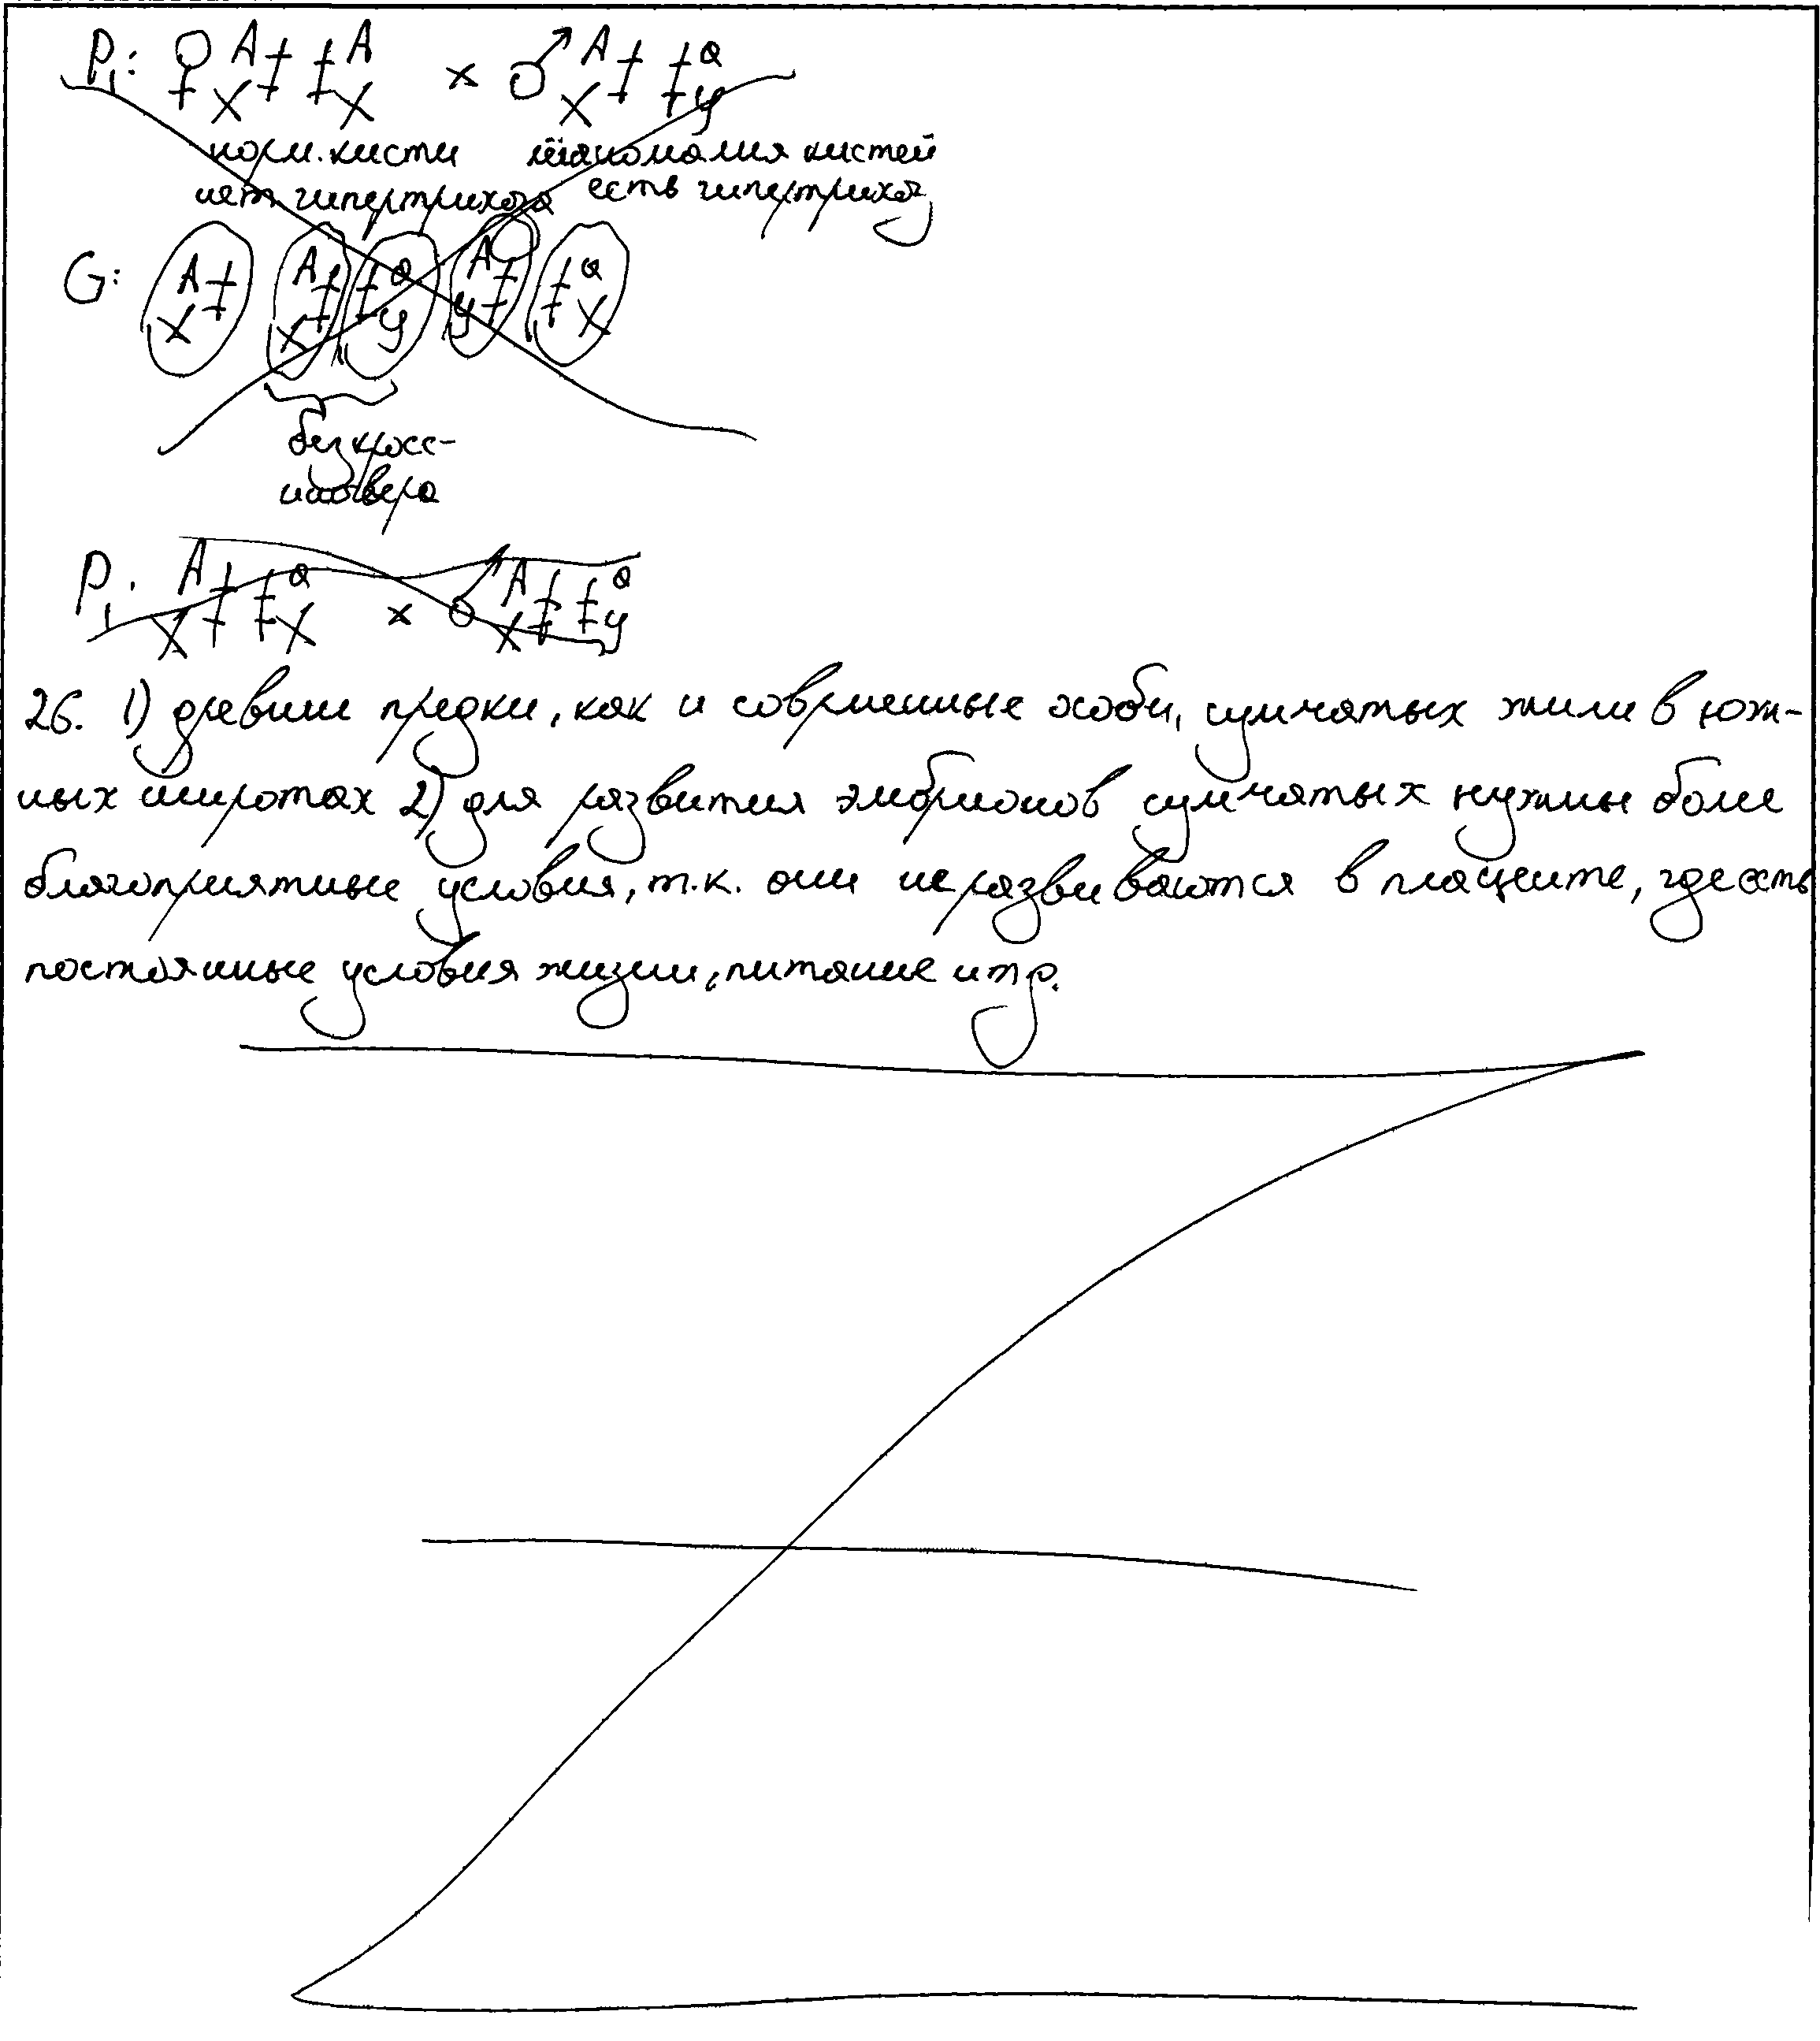 P₁: ♀ A‡ ‡A × ♂ A‡ ‡a
X X X y
норм. кисти аномалия кистей
нет гипертрихоза есть гипертрихоз
G: A‡ A‡ ‡a A‡ ‡a
X X y y X
без кросс-
инговера
P₁. A‡ ‡a × ♂ A‡ ‡a
X X X y
26. 1) древнии предки, как и соврменные особи, сумчатых жили в юж-
ных широтах 2) для развития эмбрионов сумчатых нужны боле
благоприятные условия, т.к. они не развиваются в плаценте, где есть
постоянные условия жизни, питание и т р.